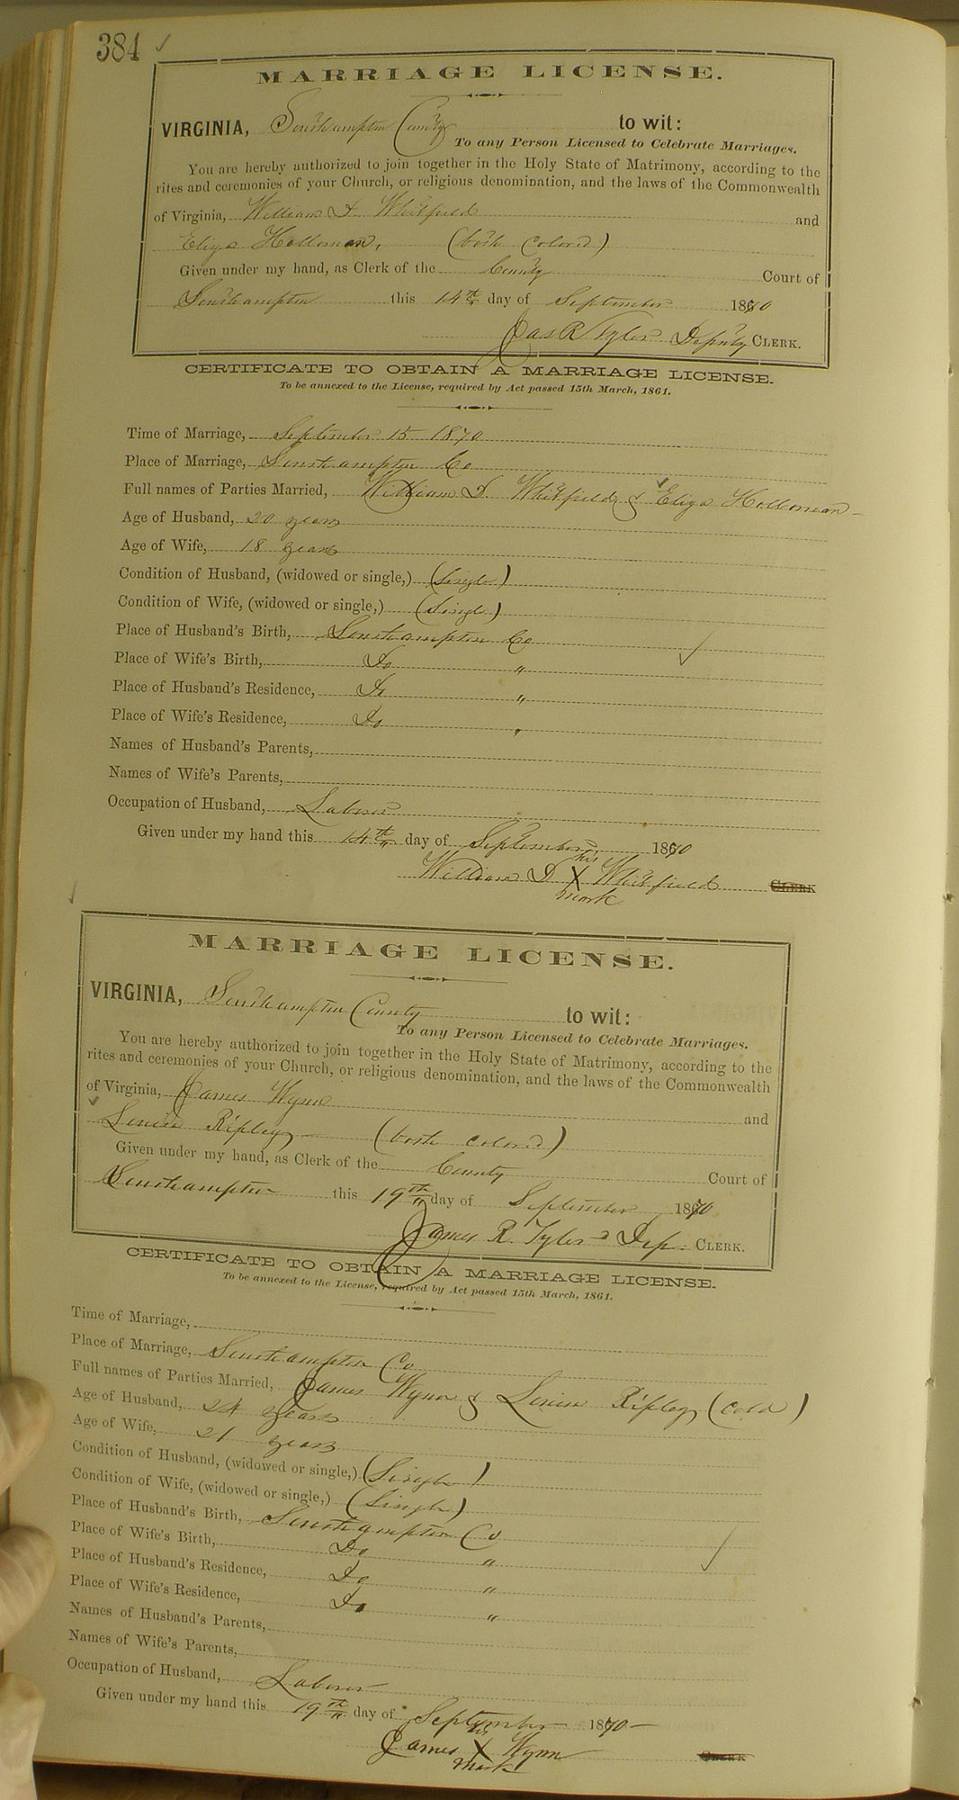 384
MARRIAGE LICENSE.
VIRGINIA, Southampton County to wit:
To any Person Licensed to Celebrate Marriages.
You are hereby authorized to join together in the Holy State of Matrimony, according to the
rites and ceremonies of your Church, or religious denomination, and the laws of the Commonwealth
of Virginia, William D Whitfield and
Eliza Holloman, (both colored)
Given under my hand, as Clerk of the County Court of
Southampton this 14th day of September 1870
Jas R Tyler Deputy CLERK.
CERTIFICATE TO OBTAIN A MARRIAGE LICENSE.
To be annexed to the License, required by Act passed 15th March, 1861.
Time of Marriage, September 15 1870
Place of Marriage, Southampton Co
Full names of Parties Married, William D. Whitfield & Eliza Holloman
Age of Husband, 20 years
Age of Wife, 18 years
Condition of Husband, (widowed or single,) (Single)
Condition of Wife, (widowed or single,) (Single)
Place of Husband's Birth, Southampton Co
Place of Wife's Birth, Do "
Place of Husband's Residence, Do "
Place of Wife's Residence, Do "
Names of Husband's Parents,
Names of Wife's Parents,
Occupation of Husband, Laborer
Given under my hand this 14th day of September 1870
William D his X mark Whitfield CLERK
MARRIAGE LICENSE.
VIRGINIA, Southampton County to wit:
To any Person Licensed to Celebrate Marriages.
You are hereby authorized to join together in the Holy State of Matrimony, according to the
rites and ceremonies of your Church, or religious denomination, and the laws of the Commonwealth
of Virginia, James Wynn and
Ripley (both colored)
Given under my hand, as Clerk of the County Court of
Southampton this 19th day of September 1870
James R. Tyler Dep. CLERK.
CERTIFICATE TO OBTAIN A MARRIAGE LICENSE.
To be annexed to the License, required by Act passed 15th March, 1861.
Time of Marriage,
Place of Marriage, Southampton Co
Full names of Parties Married, James Wynn & Ripley (cold)
Age of Husband, 24 years
Age of Wife, 21 years
Condition of Husband, (widowed or single,) (Single)
Condition of Wife, (widowed or single,) (Single)
Place of Husband's Birth, Southampton Co
Place of Wife's Birth, Do "
Place of Husband's Residence, Do "
Place of Wife's Residence, Do "
Names of Husband's Parents,
Names of Wife's Parents,
Occupation of Husband, Laborer
Given under my hand this 19th day of September 1870
James his X mark Wynn CLERK